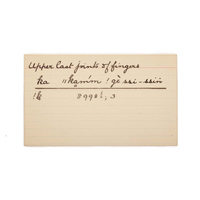 Upper last joints of fingers
ka ǁkammm ǃgè ssi-ssiń
ǃk 8998½, 3